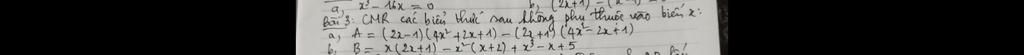 a, x³ - 16x = 0 b, (2x+1)
Bài 3: CMR các biểu thức sau không phụ thuộc vào biến x:
a, A = (2x-1)(4x²+2x+1) - (2x+1)(4x²-2x+1)
b, B = x(2x+1) - x²(x+2) + x³ - x + 5